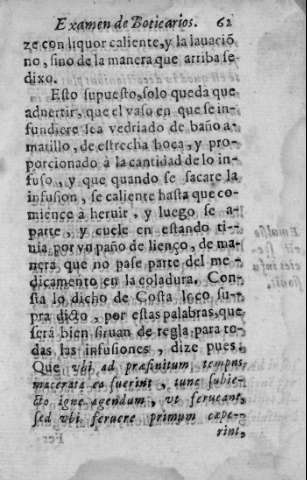 Examen de Boticarios. 62
ze con liquor caliente, y la lauaciõ
no, sino de la manera que arriba se
dixo.
Esto supuesto, solo queda que
aduertir, que el vaso en que se in-
fundiere sea vedriado de baño a-
matillo, de estrecha boca, y pro-
porcionado à la cantidad de lo in-
fuso, y que quando se sacare la
infusion, se caliente hasta que co-
mience à heruir, y luego se a-
parte, y cuele en estando ti-
nia por vn paño de lienço, de ma-
nera, que no pase parte del me-
dicamento en la coladura. Con-
sta lo dicho de Costa loco su-
pra dicto, por estas palabras, que
serà bien siruan de regla para to-
das las infusiones, dize pues:
Que vbi ad præfinitum tempus
macerata ea fuerint, tunc subie-
cto igne agendum, vt ferueant,
sed vbi feruere primum expe-
rint,